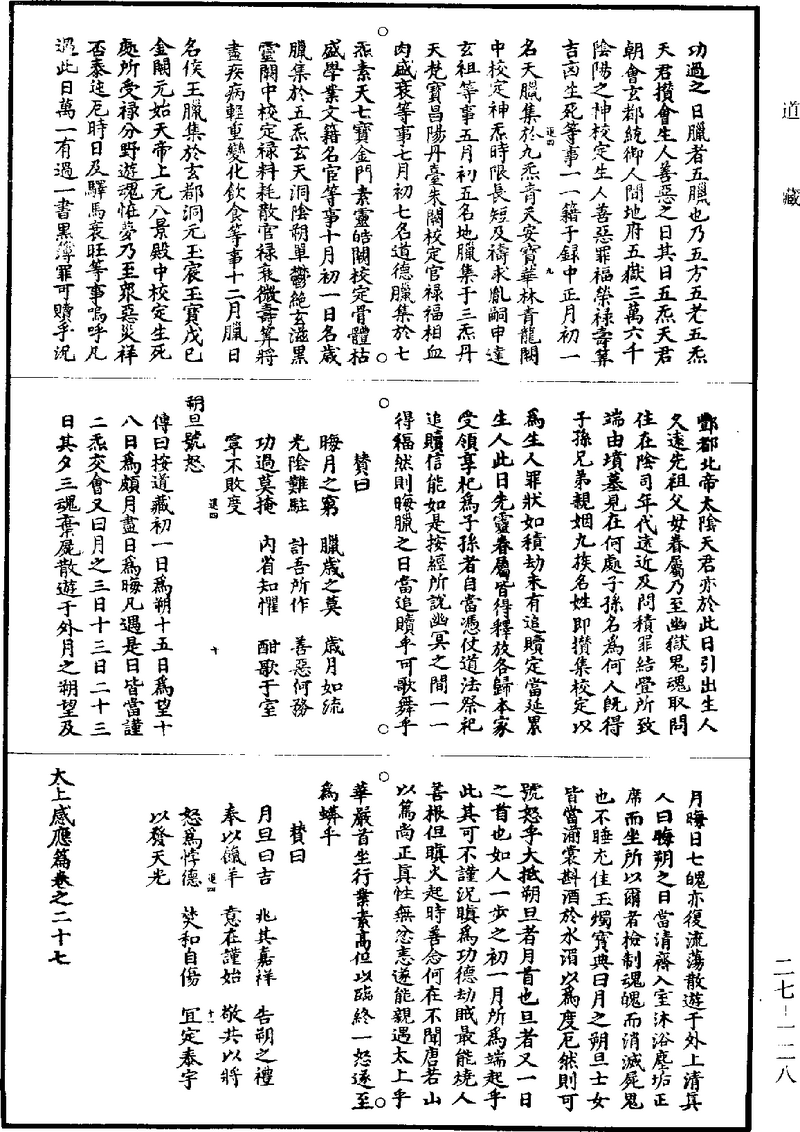 道藏
功過之日臘者五臘也乃五方五老五炁
天君攢會生人善惡之日其日五炁天君
朝會玄都統御人間地府五嶽三萬六千
陰陽之神校定生人善惡罪福榮祿壽筭
吉凶生死等事一一籍于錄中正月初一
名天臘集於九炁青天安寶華林青龍闕
中校定神炁時限長短及禱求胤嗣申達
玄祖等事五月初五名地臘集于三炁丹
天梵寶昌陽丹臺朱闕校定官祿福相血
肉盛衰等事七月初七名道德臘集於七
炁素天七寶金門素靈皓闕校定骨體枯
盛學業文籍名宦等事十月初一日名歲
臘集於五炁玄天洞陰朔單鬱絕玄滋黑
靈闕中校定祿料耗散官祿衰微壽筭將
盡疾病輕重變化飲食等事十二月臘日
名侯王臘集於玄都洞元玉宸玉寶戊巳
金闕元始天帝上元八景殿中校定生死
處所受祿分野遊魂恠夢乃至眾惡災祥
否泰迍厄時日及驛馬衰旺等事嗚呼凡
過此日萬一有過一書黑簿罪可贖乎況
酆都北帝太陰天君亦於此日引出生人
久遠先祖父母眷屬乃至幽獄鬼魂取問
住在陰司年代遠近及問積罪結釁所致
端由墳墓見在何處子孫名為何人既得
子孫兄弟親姻九族名姓即攢集校定以
為生人罪狀如積劫未有追贖定當延累
生人此日先靈眷屬皆得釋放各歸本家
受領享祀為子孫者自當憑仗道法祭祀
追贖信能如是按經所說幽冥之間一一
得福然則晦臘之日當追贖乎可歌舞乎
賛曰
晦月之窮 臘歲之莫 歲月如流
光陰難駐 計吾所作 善惡何務
功過莫掩 內省知懼 酣歌于室
寧不敗度
朔旦號怒
傳曰按道藏初一日為朔十五日為望十
八日為頗月盡日為晦凡遇是日皆當謹
二炁交會又曰月之三日十三日二十三
日其夕三魂棄屍散遊于外月之朔望及
月晦日七魄亦復流蕩散遊于外上清真
人曰晦朔之日當清齋入室沐浴塵垢正
席而坐所以爾者檢制魂魄而消滅屍鬼
也不睡尤佳玉燭寶典曰月之朔旦士女
皆當湔裳斟酒於水湄以為度厄然則可
號怒乎大抵朔旦者月首也旦者又一日
之首也如人一步之初一月所為端起乎
此其可不謹況瞋為功德劫賊最能燒人
善根但瞋火起時善念何在不聞唐若山
以篤尚正真性無忿恚遂能親遇太上乎
華嚴首生行業素高但以臨終一怒遂至
為蟒乎
賛曰
月旦曰吉 兆其嘉祥 告朔之禮
奉以餼羊 意在謹始 敬共以將
怒為悖德 焚和自傷 宜定泰宇
以發天光
太上感應篇卷之二十七
二七—一二八